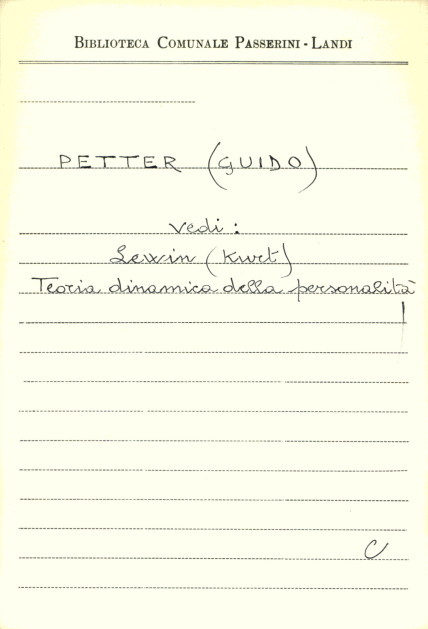 BIBLIOTECA COMUNALE PASSERINI - LANDI
PETTER (GUIDO)
vedi :
Lewin (Kurt)
Teoria dinamica della personalità
C